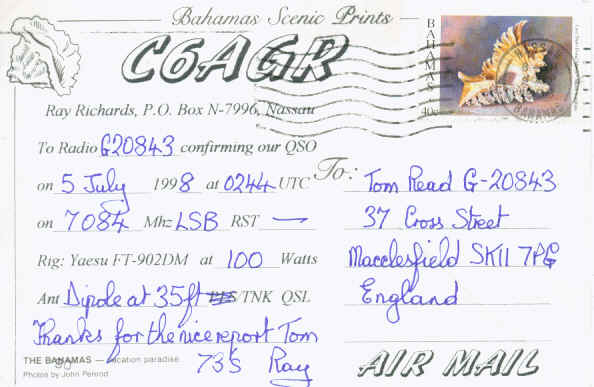 Bahamas Scenic Prints
C6AGR
Ray Richards, P.O. Box N-7996, Nassau
To Radio G20843 confirming our QSO
on 5 July 1998 at 0244 UTC
on 7084 Mhz LSB RST —
Rig: Yaesu FT-902DM at 100 Watts
Ant Dipole at 35ft TNK QSL
Thanks for the nice report Tom
73's Ray
THE BAHAMAS — vacation paradise
Photos by John Penrod
BAHAMAS
40c
BAHAMAS
To:
Tom Read G-20843
37 Cross Street
Macclesfield SK11 7PG
England
AIR MAIL